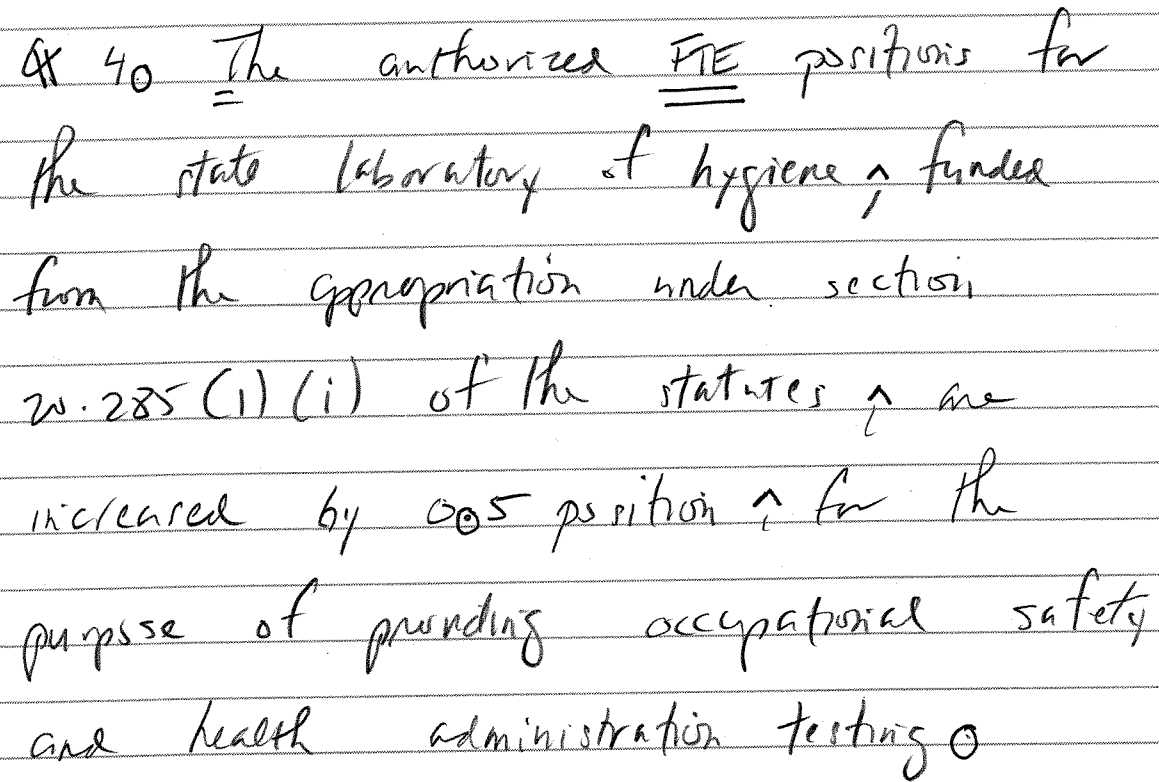 ¶ 40 The authorized FTE positions for
the state laboratory of hygiene, funded
from the appropriation under section
20.285 (1) (i) of the statutes, are
increased by 0.5 position, for the
purpose of providing occupational safety
and health administration testing.